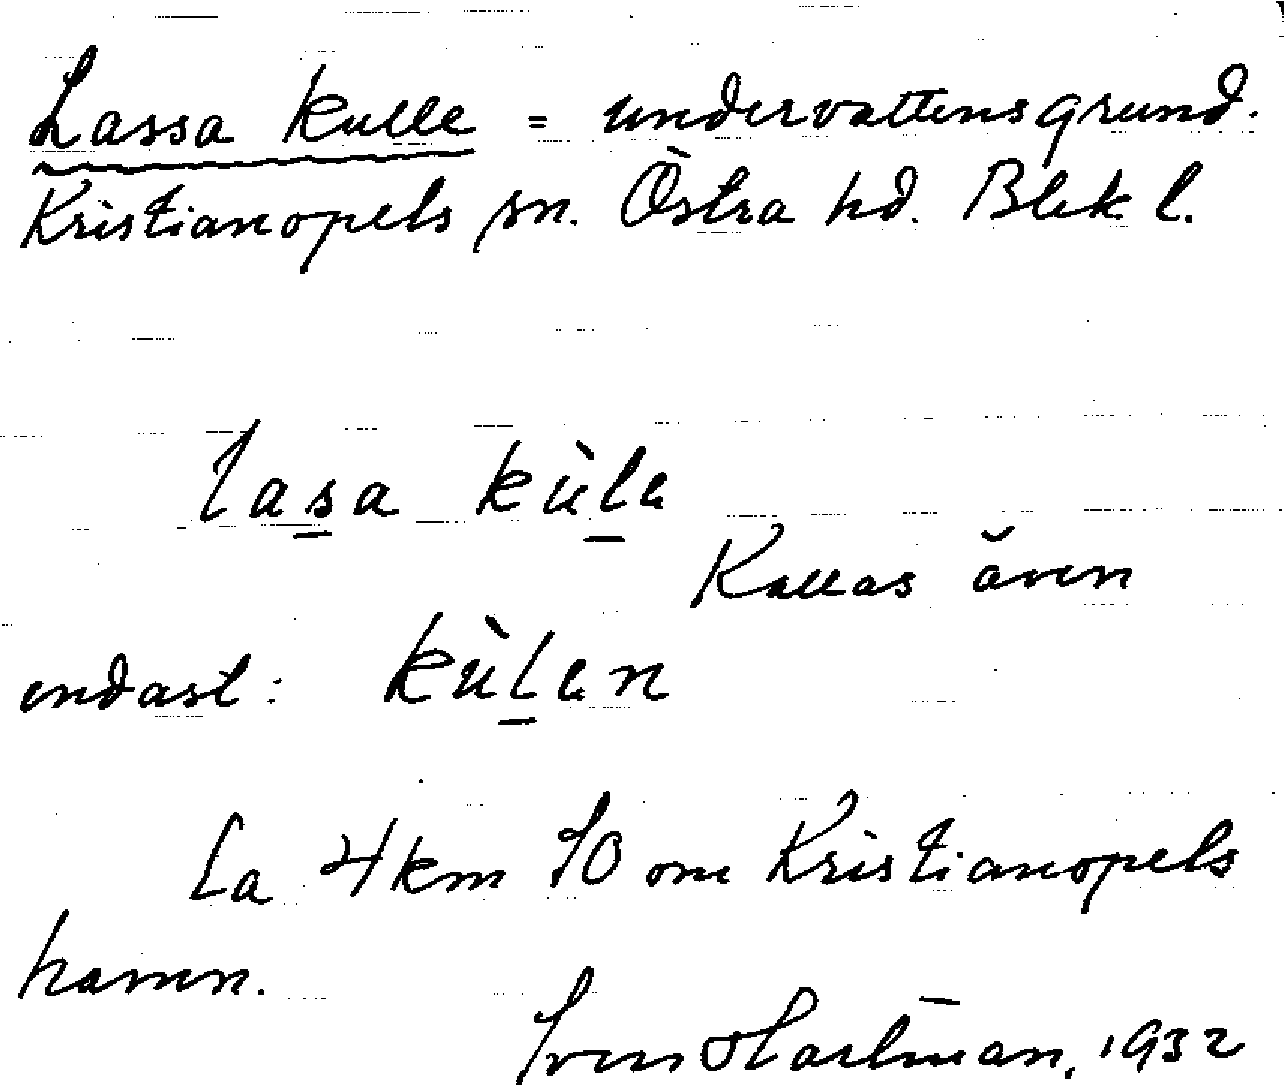 Lassa kulle = undervattensgrund.
Kristianopels sn. Östra hd. Blek. l.
lasa kùle
Kallas även
endast: kùlen
Ca 4 km SO om Kristianopels
hamn.
Sven Hartman, 1932